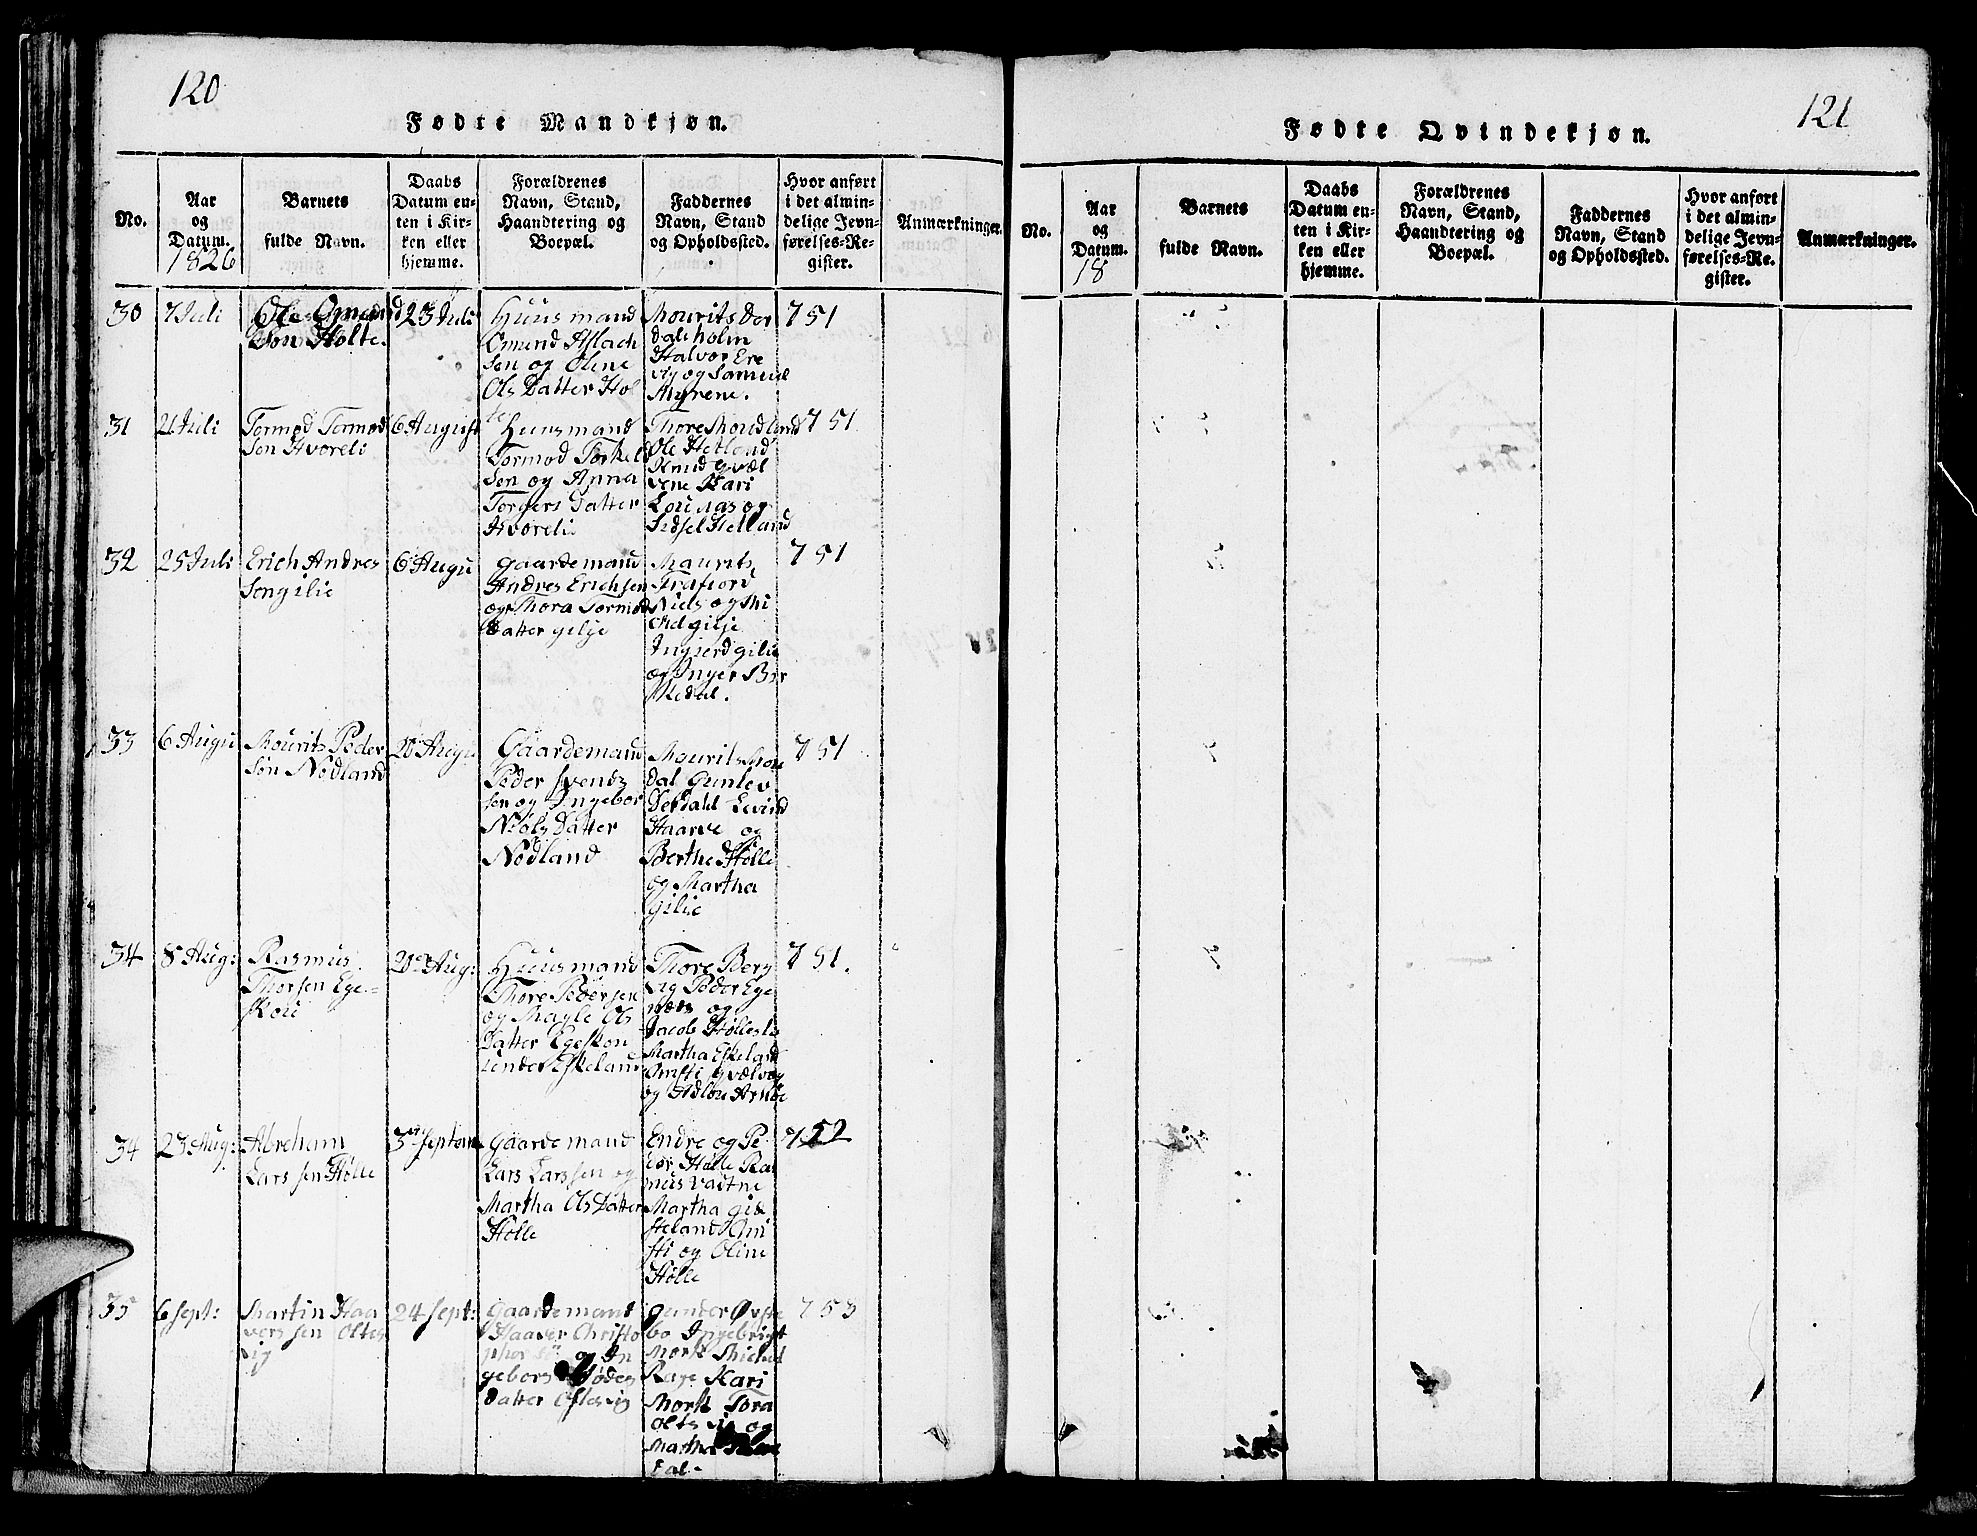 120
Fødte Mandkjøn.
No.
Aar
og
Datum.
1826
Barnets
fulde Navn.
Daabs
Datum en-
ten i Kir-
ken eller
hjemme.
Forældrenes
Navn, Stand,
Haandtering og
Boepæl.
Faddernes
Navn, Stand
og Opholdssted.
Hvor anført
i det almin-
delige Jevn-
førelses-Re-
gister.
Anmærkninger.
30
7 Juli
Ole Omund
Søn Holte.
23 Juli
Huusmand
Omund Aslach
sen og Oline
Ols Datter Hol
te
Mourits Dør
dalsholm
Halvor Ere
vig og Samuel
Myrene.
751
31
21 Juli
Tormod Tormod
Søn Hvoreli
6 August
Huusmand
Tormod Torkels
søn og Anna
Torgers Datter
Hvoreli
Thore Moudland
Ole Hetland
Knud
Kari
og
Sidsel Helland
751
32
25 Juli
Erich Andres
Søn gilie
6 Augu
Gaardemand
Andres Erichsen
og Thora Tormod
Datter gilje
Mourits
Frafiord
Niels og Mi
chel gilje
Ingierd gilie
og Inger Bir
kedal.
751
33
6 Augu
Mourits Peder
søn Nødland
20 Augu
Gaardemand
Peder Svends
søn og Ingebor
Niols Datter
Nødland
Mourits Mou
dal Gunlev
Dørdahl Eevind
Haarre og
Berthe Hølle
og Martha
Gilie
751
34
8 Aug:
Rasmus
Thorsen Ege-
skou
20de Aug:
Huusmand
Thore Pedersen
og Magle Ols
Datter Egeskou
under Eskeland
Thore Berg
vig Peder Ege
næs og
Jacob Hølleslie
Martha Eskeland
og
751.
34
23 Aug:
Abreham
Larssen Hølle
3de Septem
Gaardemand
Lars Larssen og
Martha Ols Datter
Hølle
Endre og Pe
der Hølle Ras
mus Vadtne
Martha Gie
steland Kri
sti og Oline
Hølle
752
35
6 Sept:
Martin Haa
versen Oltes
vig
24 Sept:
Gaardemand
Haaver Christo
phersø og In
gebor
Datter Oltesvig
Gunder Øvste
bo Ingebrigt
Mork Michel
Rage Kari
Mork Tora
Oltsvig og
Martha
dal.
753
121
Fødte Qvindekjøn.
No.
Aar
og
Datum.
18
Barnets
fulde Navn.
Daabs
Datum en-
ten i Kir-
ken eller
hjemme.
Forældrenes
Navn, Stand,
Haandtering og
Boepæl.
Faddernes
Navn, Stand
og Opholdssted.
Hvor anført
i det almin-
delige Jevn-
førelses-Re-
gister.
Anmærkninger.